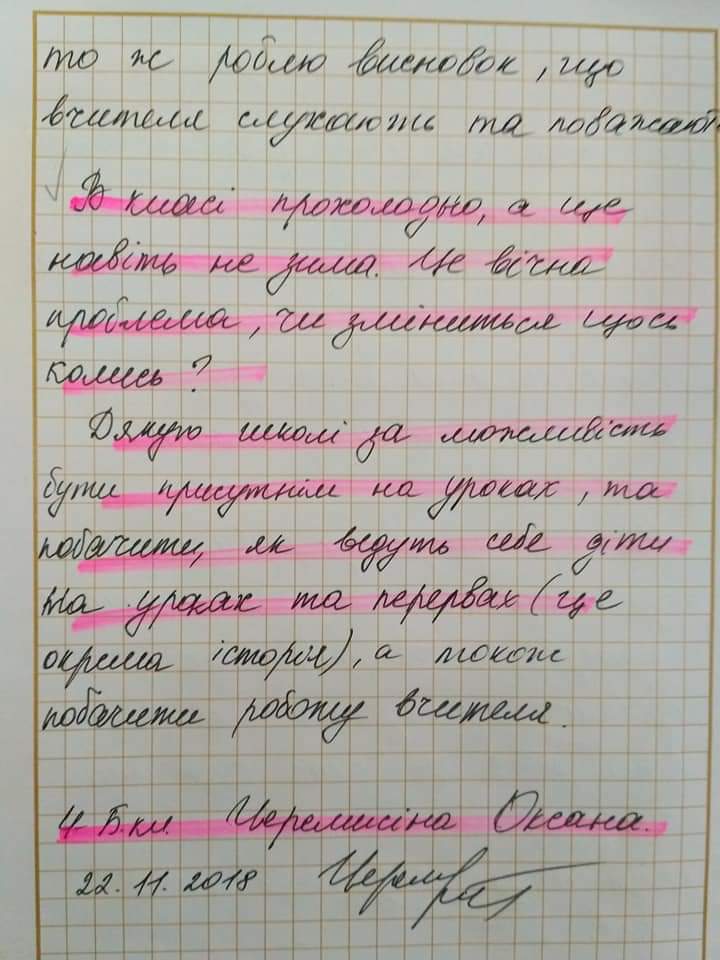 то ж роблю висновок, що
вчителя слухають та поважають.
В класі прохолодно, а ще
навіть не зима. Це вічна
проблема, чи зміниться щось
колись?
Дякую школі за можливість
бути присутнім на уроках, та
побачити, як ведуть себе діти
на уроках та перервах (це
окрема історія), а також
побачити роботу вчителя.
4-Б кл. Черемисіна Оксана.
22.11.2018